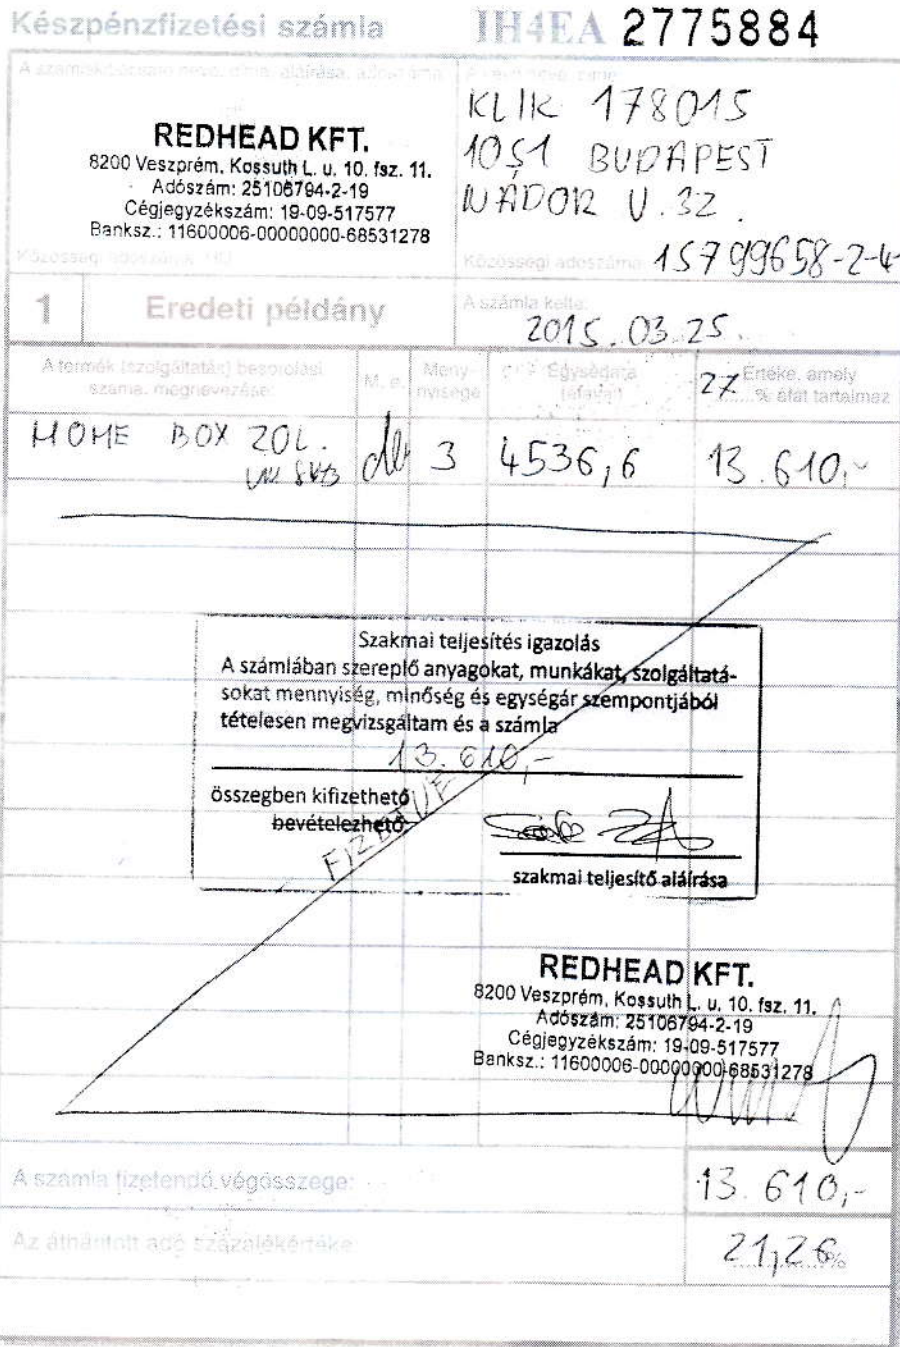 Készpénzfizetési számla IH4EA 2775884
A számlakibocsátó neve, címe, aláírása, adószáma
REDHEAD KFT.
8200 Veszprém, Kossuth L. u. 10. fsz. 11.
Adószám: 25106794-2-19
Cégjegyzékszám: 19-09-517577
Banksz.: 11600006-00000000-68531278
KLIK 178015
1051 BUDAPEST
NÁDOR U. 32.
Közösségi adószáma 15799658-2-4
1 Eredeti példány
A számla kelte:
2015.03.25.
A termék (szolgáltatás) besorolási
száma, megnevezése:
M. e.
Meny-
nyisége
Egységára
27 Értéke, amely
% áfát tartalmaz
HOME BOX 20L. db 3 4536,6 13.610,-
Szakmai teljesítés igazolás
A számlában szereplő anyagokat, munkákat, szolgáltatá-
sokat mennyiség, minőség és egységár szempontjából
tételesen megvizsgáltam és a számla
13.610,-
összegben kifizethető
bevételezhető.
FIZETVE
szakmai teljesítő aláírása
REDHEAD KFT.
8200 Veszprém, Kossuth L. u. 10. fsz. 11.
Adószám: 25106794-2-19
Cégjegyzékszám: 19-09-517577
Banksz.: 11600006-00000000-68531278
A számla fizetendő végösszege: 13.610,-
Az áthárított adó százalékértéke: 21,26%